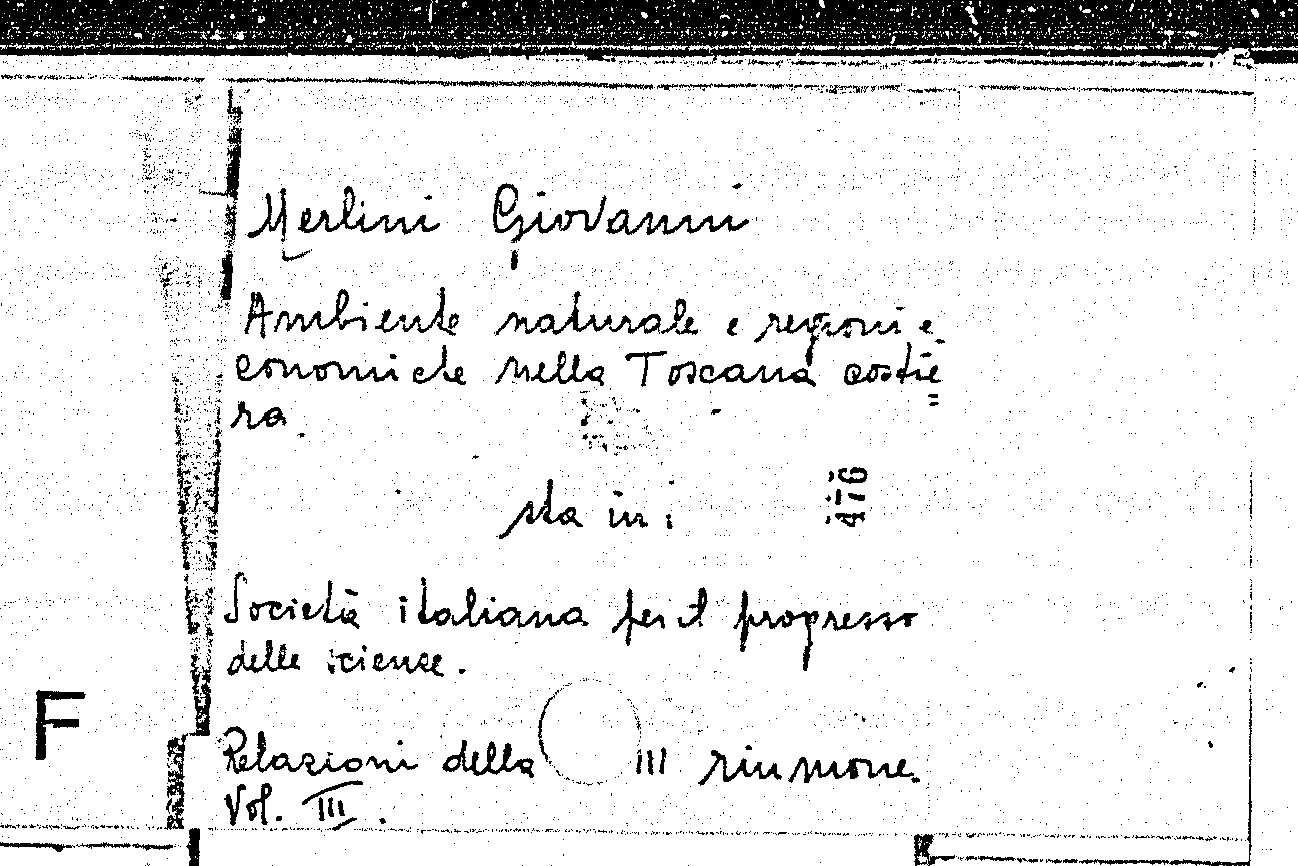 Merlini Giovanni
Ambiente naturale e regioni e
conomiche nella Toscana costie
ra.
sta in:
476
Società italiana per il progresso
delle scienze.
F
Relazioni della III riunione.
Vol. III.